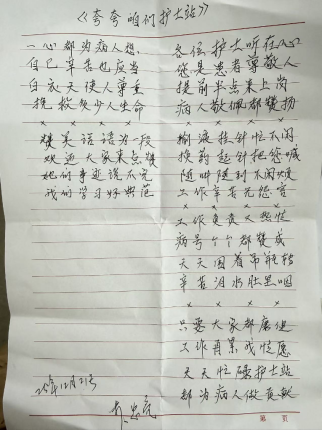 《夸夸咱们护士站》
一心都为病人想
自己辛苦也应当
白衣天使人尊重
挽救多少人生命
× × × ×
赞美话语为一段
欢迎大家来点赞
她们事迹说不完
我们学习好典范
各位护士听在心
您是患者尊敬人
提前半点来上岗
病人敬佩都赞扬
× × × ×
输液接针忙不闲
换药起针把您喊
随叫随到不闲烦
工作辛苦无怨言
× × × ×
工作负责又热忱
病号个个都赞成
天天围着吊瓶转
辛苦泪水肚里咽
× × × ×
只要大家都康健
工作再累我情愿
天天忙碌护士站
都为病人做贡献
25年12月21号
第 页